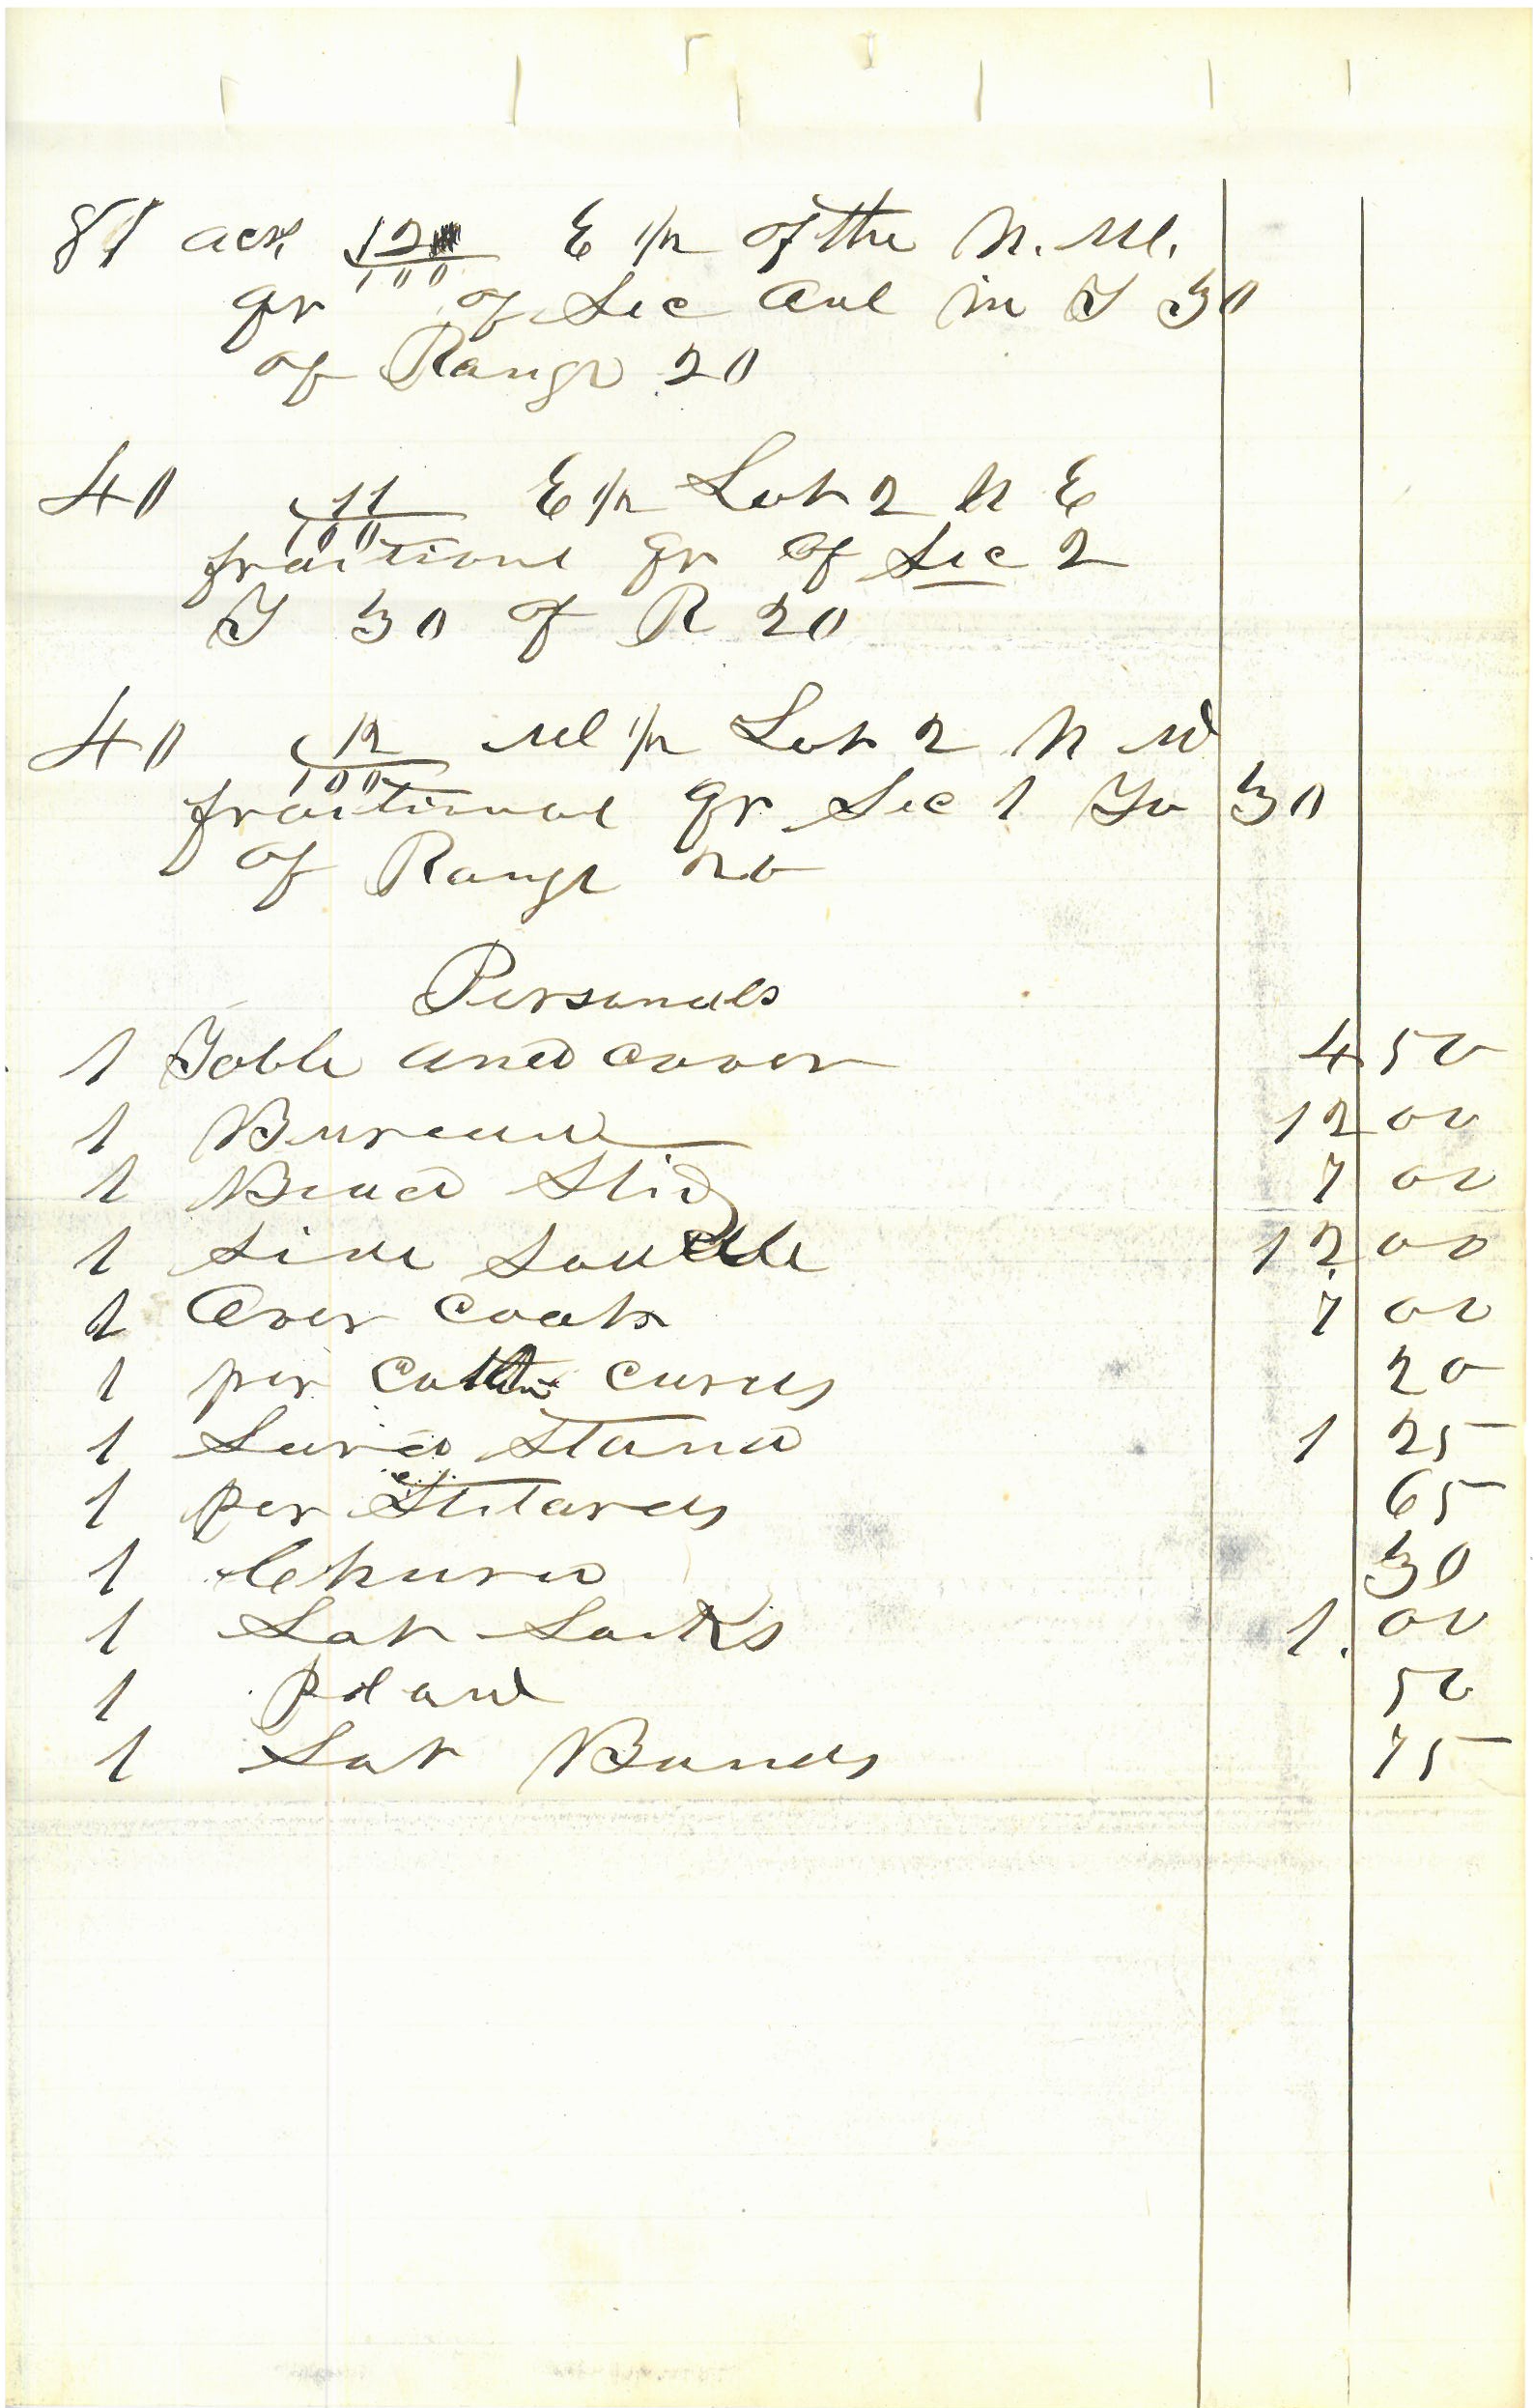 81 acr 12/100 E 1/2 of the N. W.
qr of Sec one in T 30
of Range 20
40 11/100 E 1/2 Lot 2 N E
fractional qr of Sec 2
T 30 of R 20
40 12/100 W 1/2 Lot 2 N W
fractional qr Sec 1 To 30
of Range 20
Personals
1 Table and cover 4 50
1 Bureau 12 00
1 Bead Stid 7 00
1 Side Saddle 12 00
1 Over Coat 7 00
1 per Cotton cards 20
1 Stand 1 25
1 per Stilards 65
1 Churn 30
1 Lot Sacks 1. 00
1 50
1 Lot Bonds 75